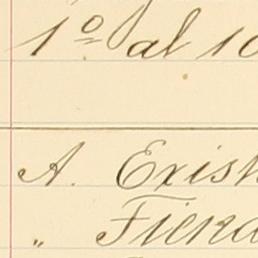 1º al 10
A. Exist
" Tiend